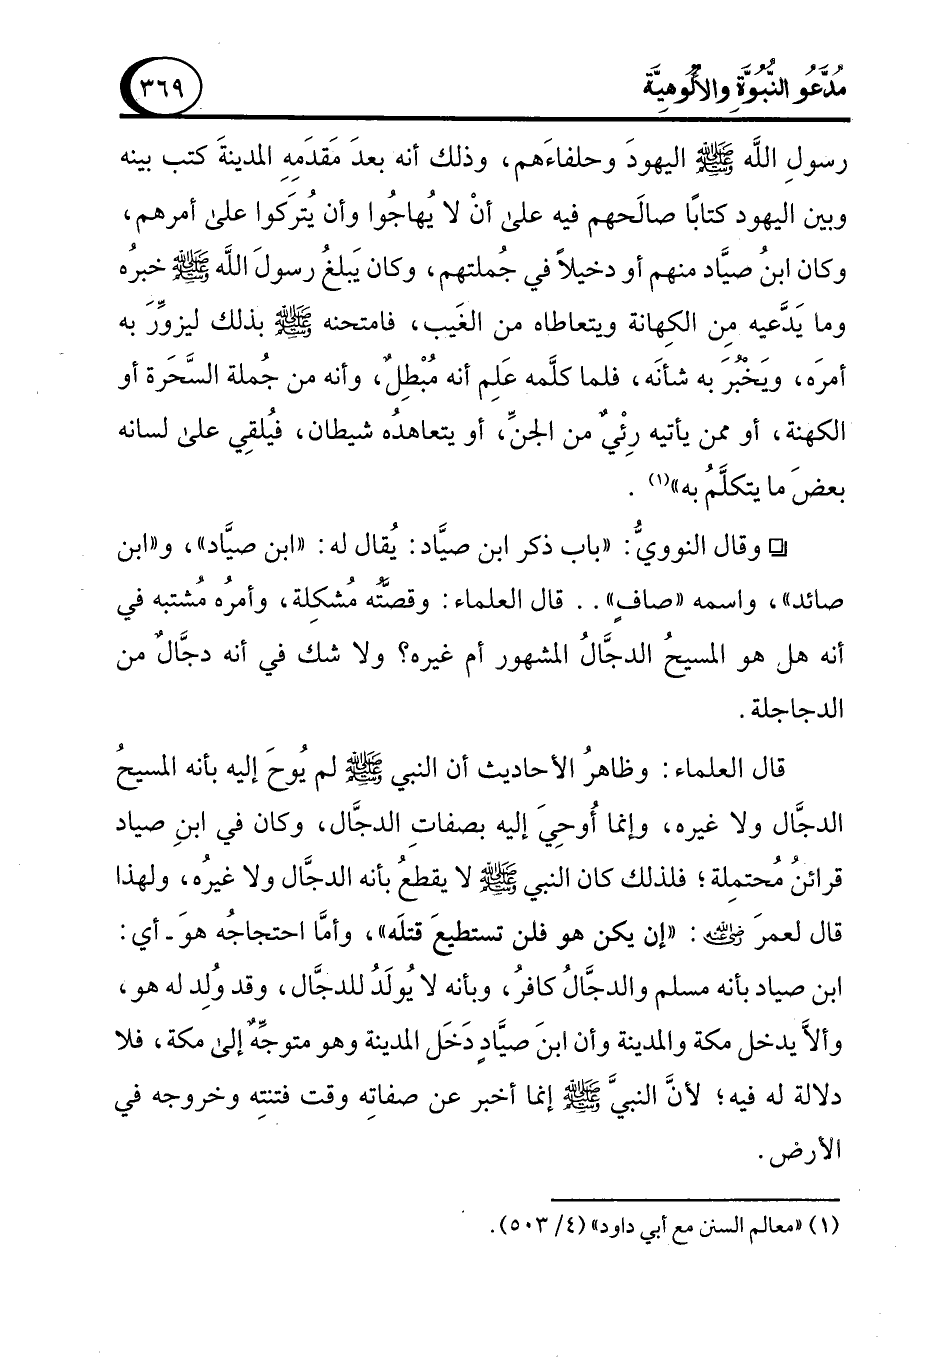 مُدَّعُو النُّبُوَّةِ والأُلُوهيَّة
٣٦٩
رسولِ اللَّه ﷺ اليهودَ وحلفاءَهم، وذلك أنه بعدَ مَقدَمِهِ المدينةَ كتب بينه
وبين اليهود كتابًا صالَحهم فيه على أنْ لا يُهاجُوا وأن يُترَكوا على أمرهم،
وكان ابنُ صيَّاد منهم أو دخيلاً في جُملتهم، وكان يَبلغُ رسولَ اللَّه ﷺ خبرُه
وما يَدَّعيه مِن الكهانة ويتعاطاه من الغَيب، فامتحنه ﷺ بذلك ليزوِّرَ به
أمرَه، ويَخْبُرَ به شأنَه، فلما كلَّمه عَلِم أنه مُبْطِلٌ، وأنه من جُملة السَّحَرة أو
الكهنة، أو ممن يأتيه رِئْيٌ من الجنِّ، أو يتعاهدُه شيطان، فيُلقِي على لسانه
بعضَ ما يتكلَّمُ به»(١) .
❏ وقال النوويُّ: «باب ذكر ابن صيَّاد: يُقال له: «ابن صيَّاد»، و«ابن
صائد»، واسمه «صافٍ».. قال العلماء: وقصتُّه مُشكلة، وأمرُه مُشتبه في
أنه هل هو المسيحُ الدجَّالُ المشهور أم غيره؟ ولا شك في أنه دجَّالٌ من
الدجاجلة.
قال العلماء: وظاهرُ الأحاديث أن النبي ﷺ لم يُوحَ إليه بأنه المسيحُ
الدجَّال ولا غيره، وإنما أُوحِيَ إليه بصفاتِ الدجَّال، وكان في ابنِ صياد
قرائنُ مُحتملة؛ فلذلك كان النبي ﷺ لا يقطعُ بأنه الدجَّال ولا غيرُه، ولهذا
قال لعمرَ رضي الله عنه: «إن يكن هو فلن تستطيعَ قتلَه»، وأمَّا احتجاجُه هوَ ـ أي:
ابن صياد بأنه مسلم والدجَّالُ كافرُ، وبأنه لا يُولَدُ للدجَّال، وقد وُلِد له هو،
وألاَّ يدخل مكة والمدينة وأن ابنَ صيَّادٍ دَخَل المدينة وهو متوجِّهٌ إلى مكة، فلا
دلالة له فيه؛ لأنَّ النبيَّ ﷺ إنما أخبر عن صفاتِه وقت فتنتِه وخروجه في
الأرض.
(١) «معالم السنن مع أبي داود» (٤/ ٥٠٣).